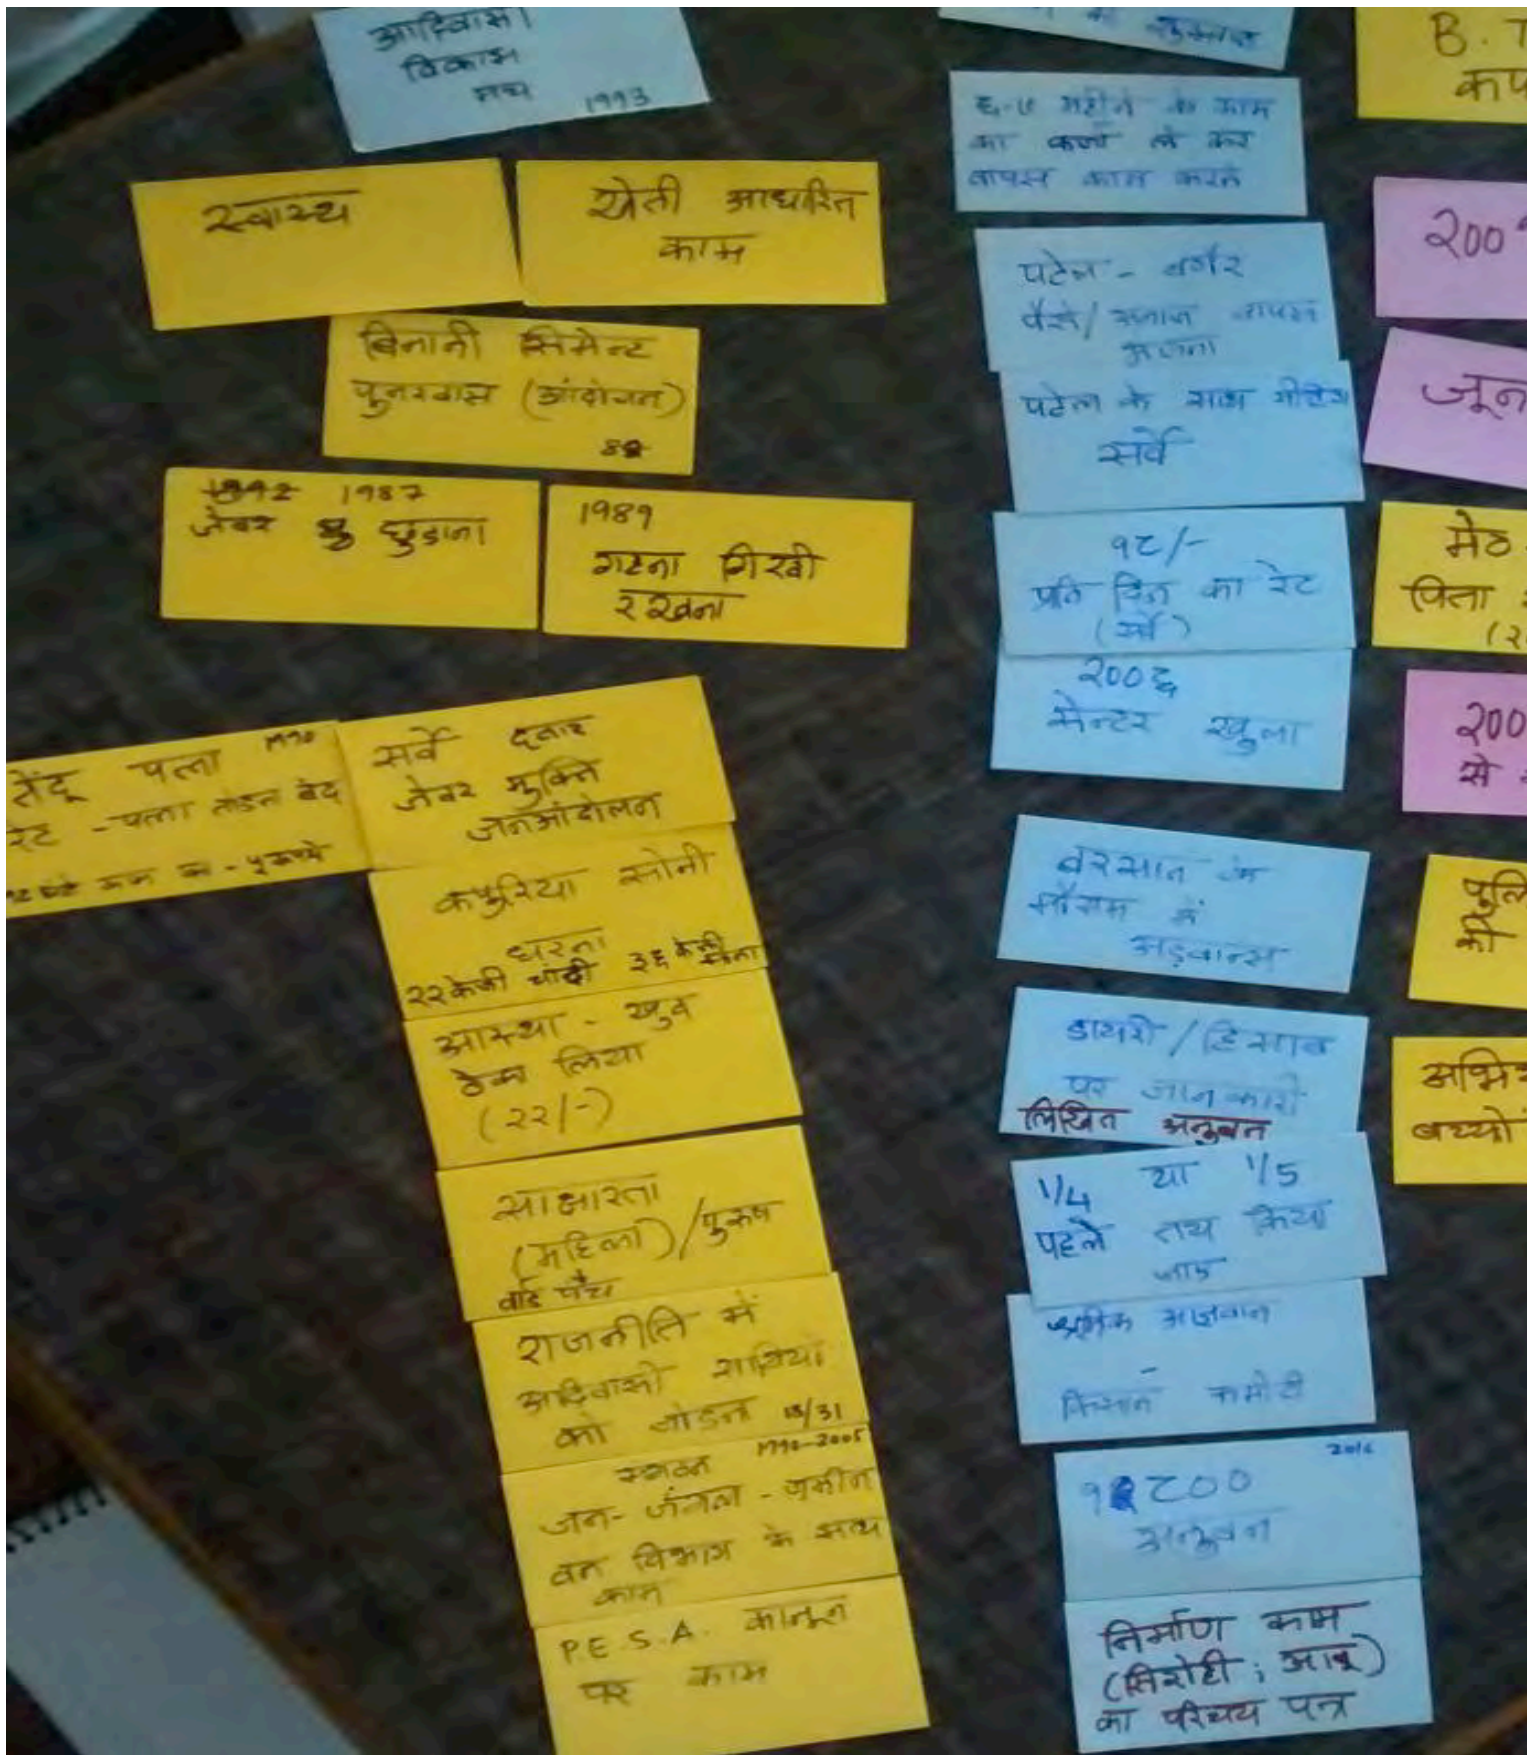 आदिवासी
विकास
मंच 1993
स्वास्थ
खेती आधारित
काम
बिनानी सिमेन्ट
पुनरवास (आंदोलन)
1987
जेवर छुडाना
1989
गहना गिरवी
रखना
तेंदू पत्ता 1990
रेट - पत्ता तोडना बंद
सर्वे
जेवर मुक्ति
जनआंदोलन
सोनी
धरना
२२ केजी चांदी ३६ केजी
आस्था - खुद
ठेका लिया
(२२/-)
साक्षारता
(महिला)/पुरुष
वार्ड पंच
राजनीति में
आदिवासी साथियों
को जोडना
1990-2005
जन-जंगल-जमीन
वन विभाग के साथ
काम
P.E.S.A. कानून
पर काम
महीने के काम
का कर्जा ले कर
वापस काम करने
पटेल - बगैर
पैसे/अनाज वापस
पटेल के साथ मीटिंग
सर्वे
१८/-
प्रति दिन का रेट
(सर्वे)
२००६
सेन्टर खुला
बरसात के
मौसम में
अड़वान्स
डायरी/हिसाब
पर जानकारी
लिखित अनुबन
1/4 या 1/5
पहले तय किया
जाए
किसान कमीटी
अनुबन
निर्माण काम
(सिरोही ; आबू)
का परिचय पत्र
B. T
जून
पिता
से
को